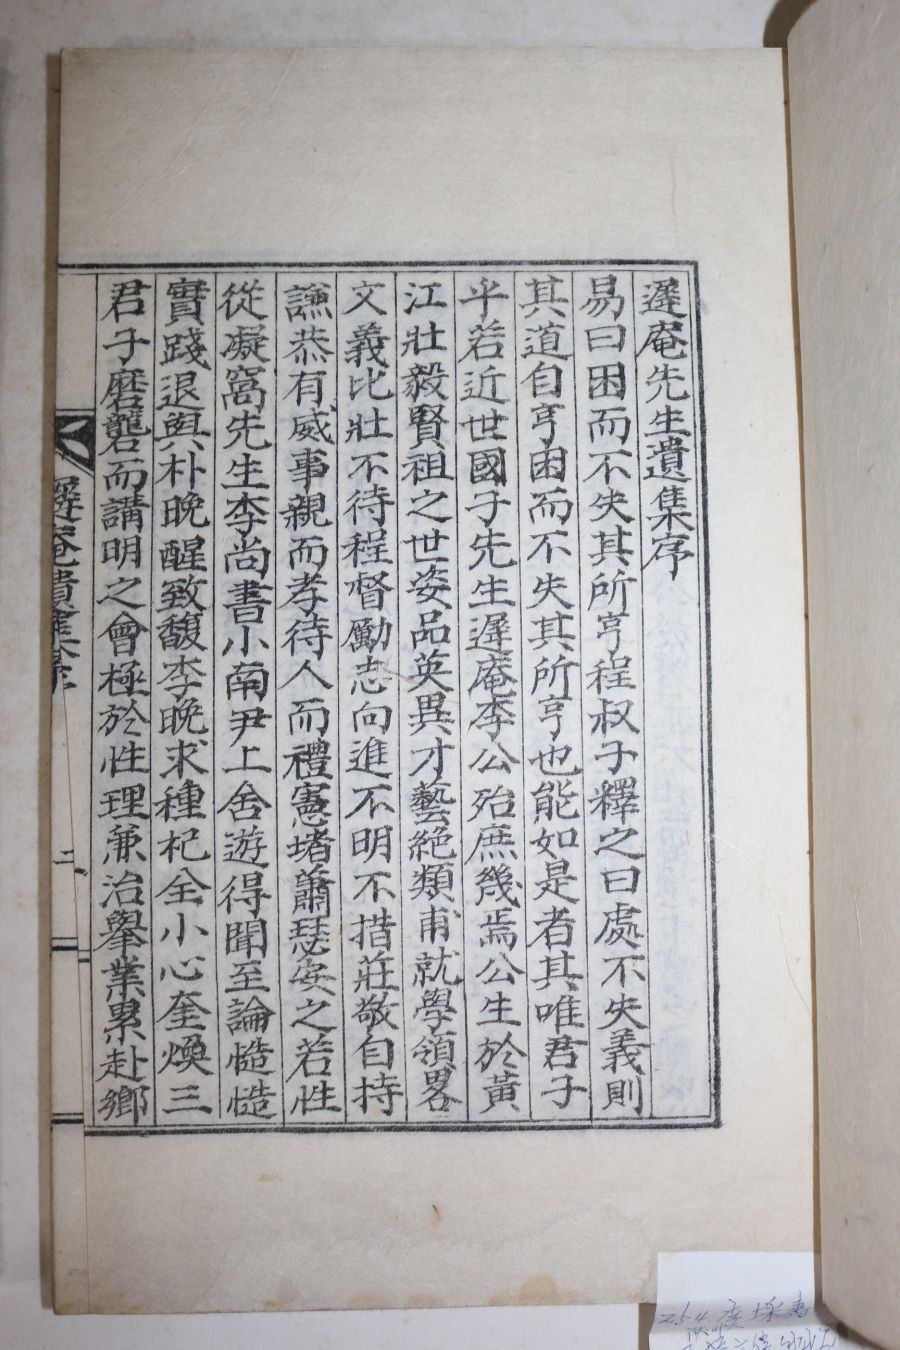 遲庵先生遺集序
易曰困而不失其所亨程叔子釋之曰處不失義則
其道自亨困而不失其所亨也能如是者其唯君子
乎若近世國子先生遲庵李公殆庶幾焉公生於黃
江壯毅賢祖之世姿品英異才藝絶類甫就學領畧
文義比壯不待程督勵志向進不明不措莊敬自持
謙恭有威事親而孝待人而禮憲堵蕭瑟安之若性
從凝窩先生李尚書小南尹上舍遊得聞至論慥慥
實踐退與朴晩醒致馥李晩求種杞全小心奎煥三
君子磨礱而講明之會極於性理兼治擧業累赴鄕
遲庵遺集序
二